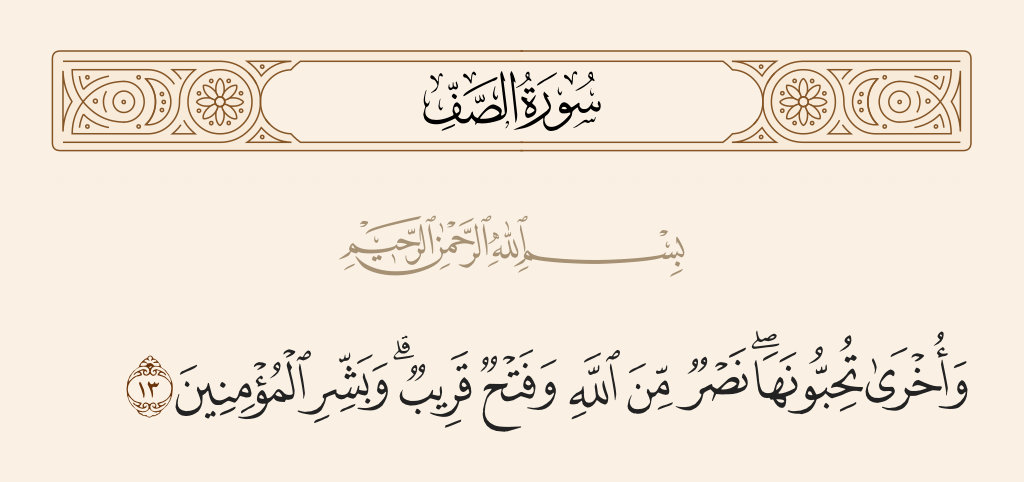 سُورَةُ الصَّفِّ
بِسْمِ ٱللَّهِ ٱلرَّحْمَٰنِ ٱلرَّحِيمِ
وَأُخْرَىٰ تُحِبُّونَهَا ۖ نَصْرٌ مِّنَ ٱللَّهِ وَفَتْحٌ قَرِيبٌ ۗ وَبَشِّرِ ٱلْمُؤْمِنِينَ ١٣